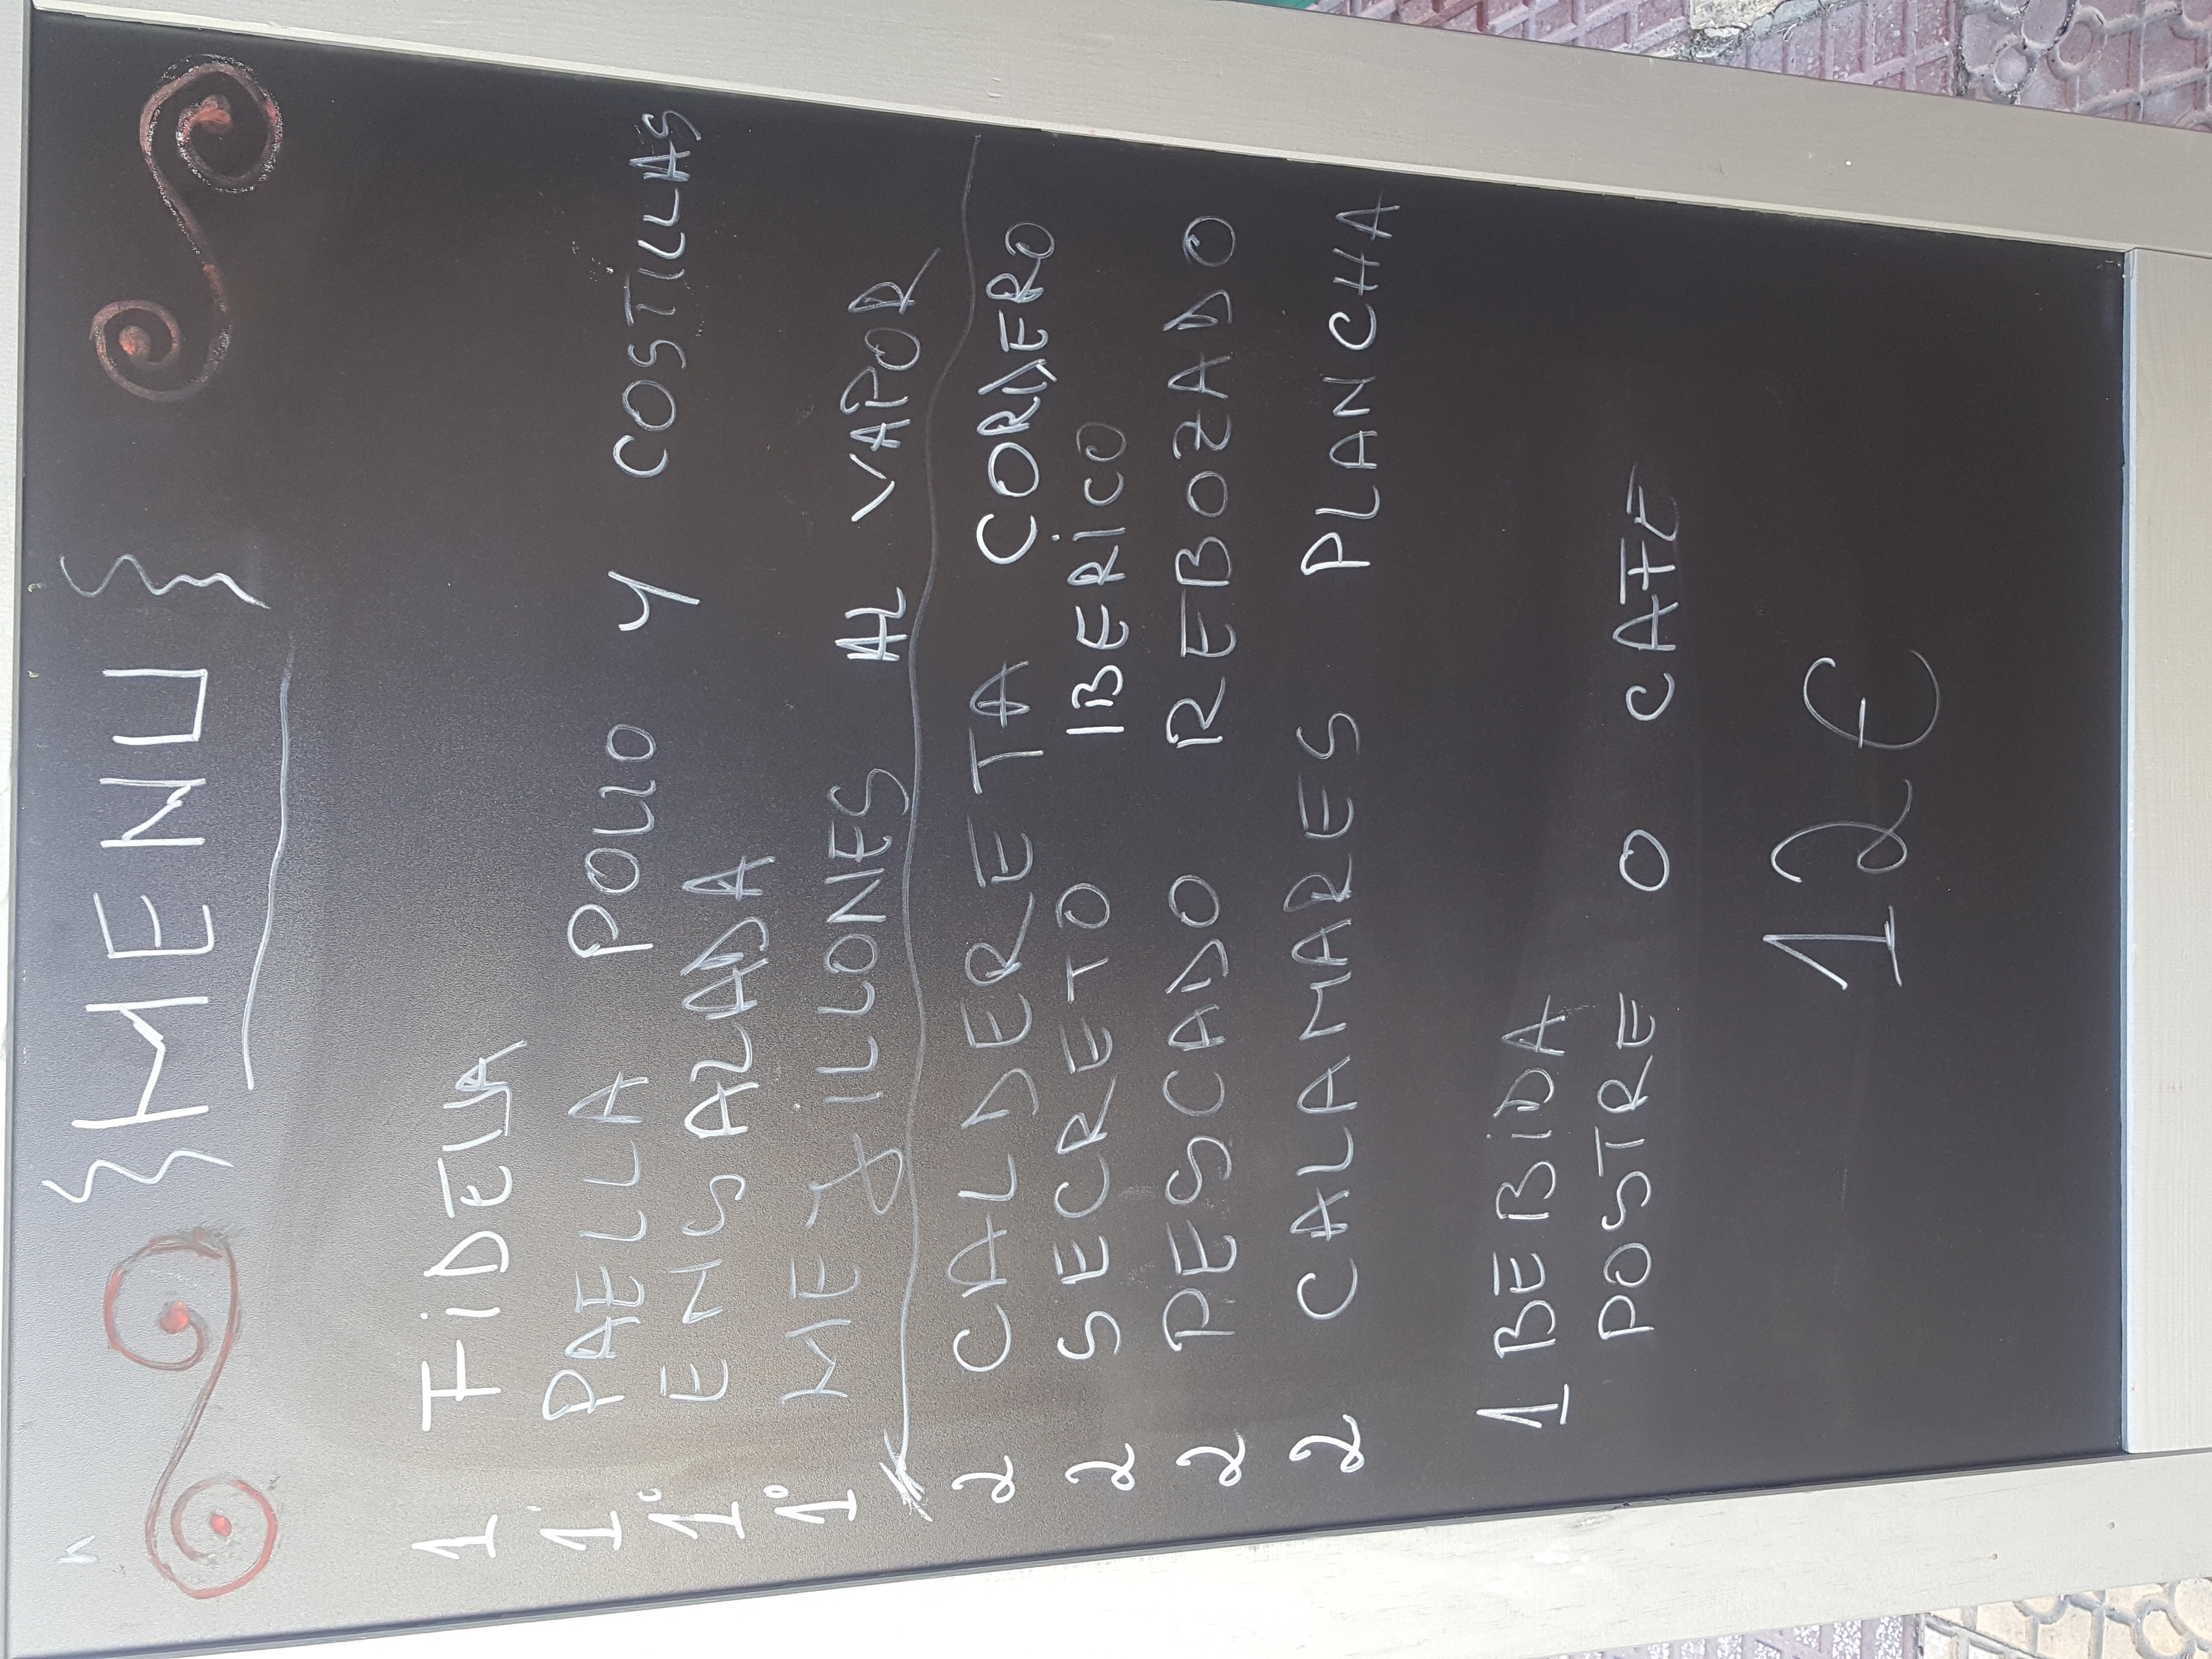 MENU
1 FIDEUA
1º PAELLA POLLO Y COSTILLAS
1º ENSALADA
1º MEJILLONES AL VAPOR
2 CALDERETA CORDERO
2 SECRETO IBERICO
2 PESCADO REBOZADO
2 CALAMARES PLANCHA
1 BEBIDA
POSTRE O CAFE
12€